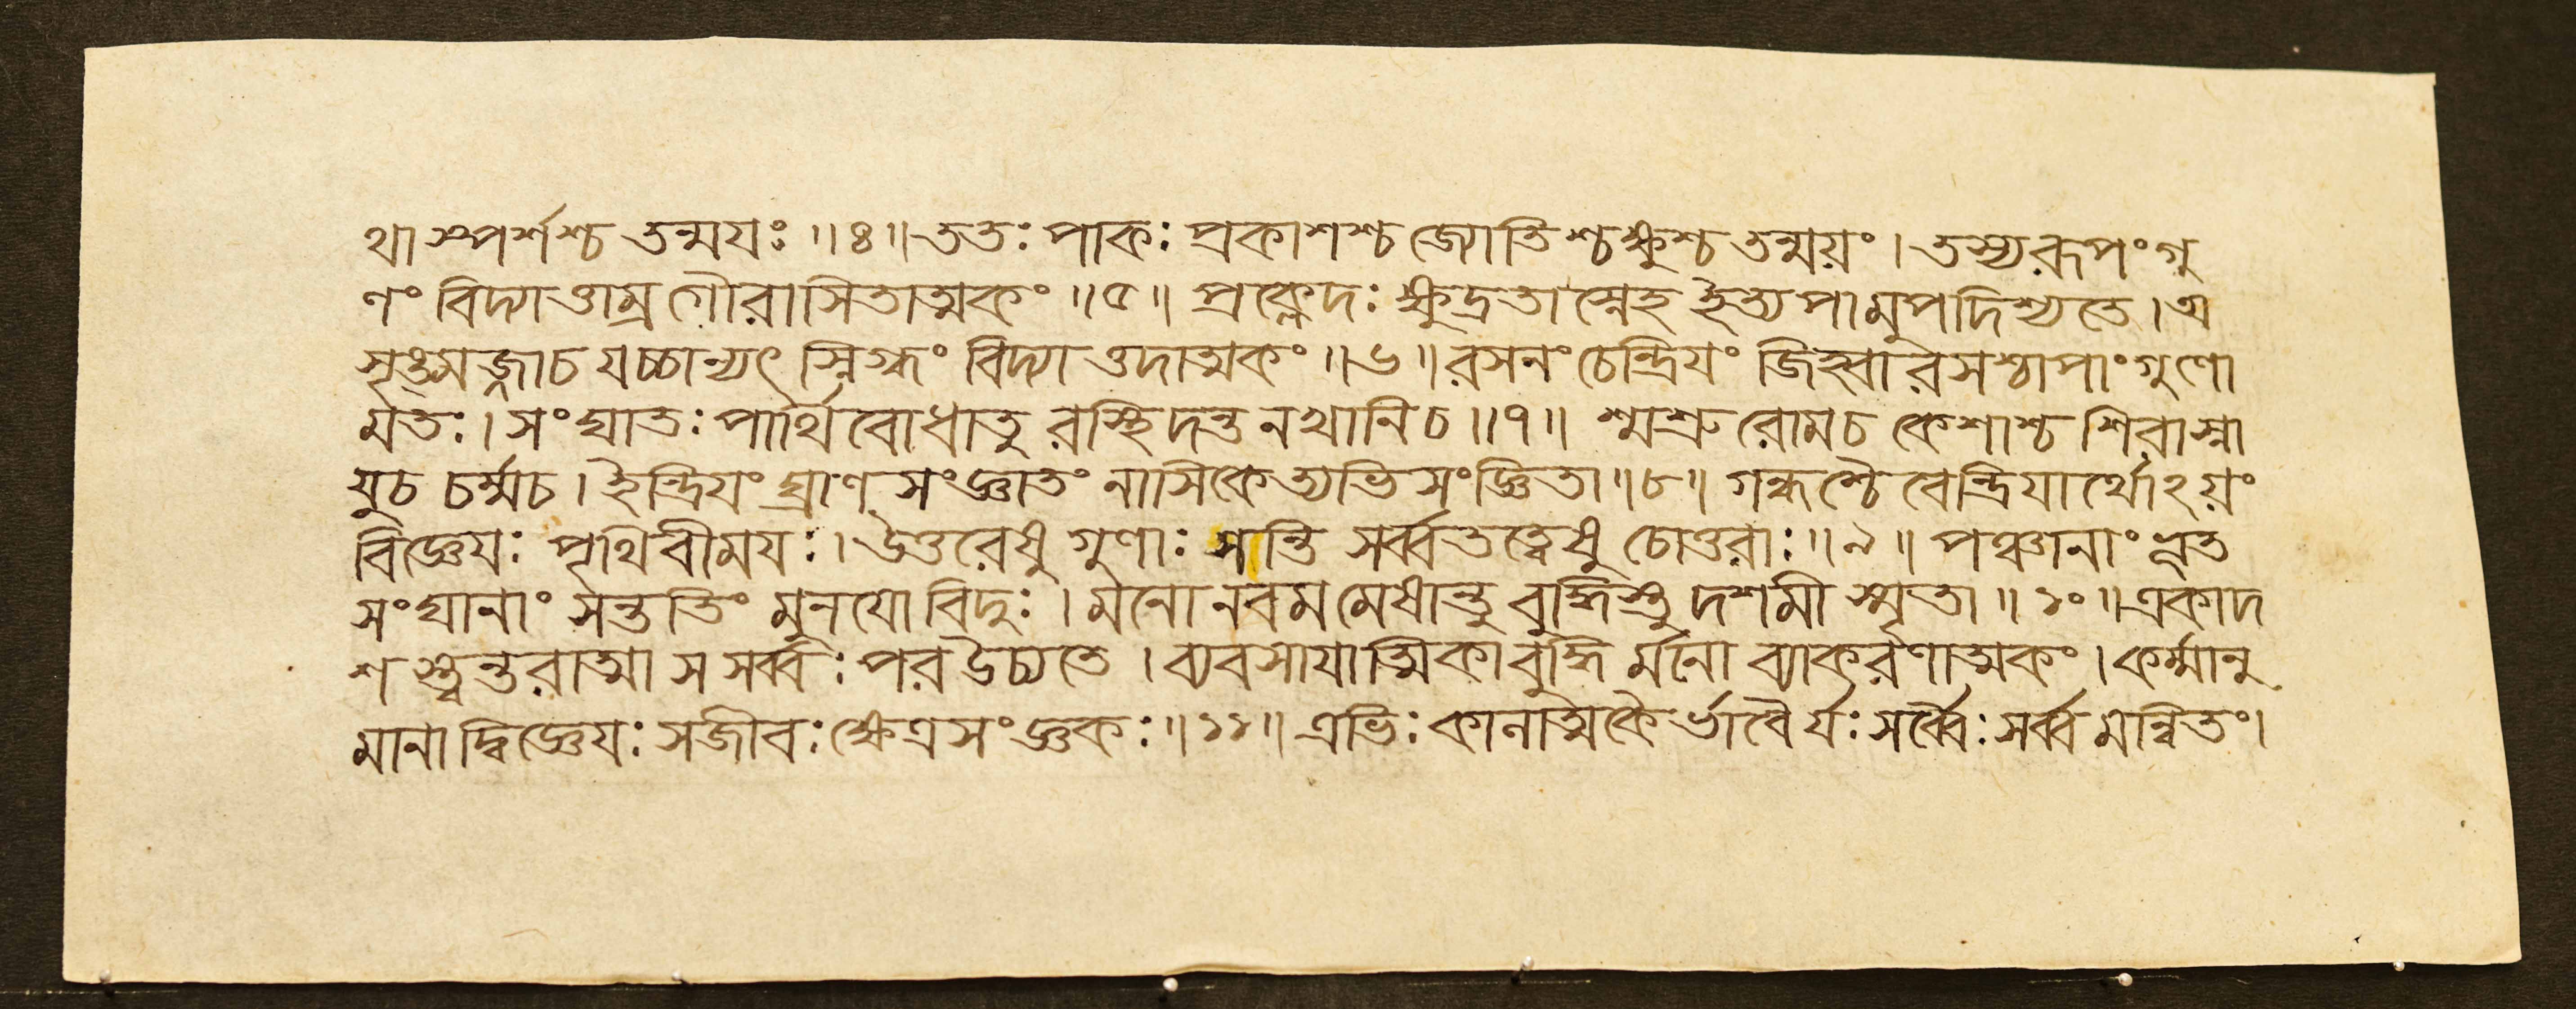 থা স্পর্শশ্চ তন্ময়ঃ ॥ ৪ ॥ ততঃ পাকঃ প্রকাশশ্চ জ্যোতিশ্চক্ষুশ্চ তন্ময়ং । তস্য রূপং গু
ণং বিদ্যাত্তাম্র গৌরাসিতাত্মকং ॥ ৫ ॥ প্রক্লেদঃ ক্ষুদ্রতা স্নেহ ইত্যপামুপদিশ্যতে । অ
সৃঙ্মজ্জাচ যচ্চান্যৎ স্নিগ্ধং বিদ্যাত্তদাত্মকং ॥ ৬ ॥ রসনং চেন্দ্রিয়ং জিহ্বা রসশ্চাপাং গুণো
র্মতঃ । সংঘাতঃ পার্থিবো ধাতু রস্থি দন্ত নখানি চ ॥ ৭ ॥ শ্মশ্রু রোম চ কেশাশ্চ শিরা স্না
যু চ চর্ম্ম চ । ইন্দ্রিয়ং ঘ্রাণ সংজ্ঞাতং নাসিকেত্যভিসংজ্ঞিতা ॥ ৮ ॥ গন্ধশ্চৈবেন্দ্রিয়ার্থোঽয়ং
বিজ্ঞেয়ঃ পৃথিবীময়ঃ । উত্তরেষু গুণাঃ সন্তি সর্ব্বতত্ত্বেষু চোত্তরাঃ ॥ ৯ ॥ পঞ্চানাং ভূত
সংঘানাং সন্ততিং মুনয়ো বিদুঃ । মনো নবমমেষান্তু বুদ্ধিস্তু দশমী স্মৃতা ॥ ১০ ॥ একাদ
শ স্ত্বন্তরাত্মা স সর্ব্বঃ পর উচ্যতে । ব্যবসায়াত্মিকা বুদ্ধি র্মনো ব্যাকরণাত্মকং । কর্ম্মানু
মানাদ্বিজ্ঞেয়ঃ স জীবঃ ক্ষেত্রসংজ্ঞকঃ ॥ ১১ ॥ এভিঃ কানাত্মকৈ র্ভাবৈর্যঃ সর্ব্বৈঃ সর্ব্ব মন্বিতং ।